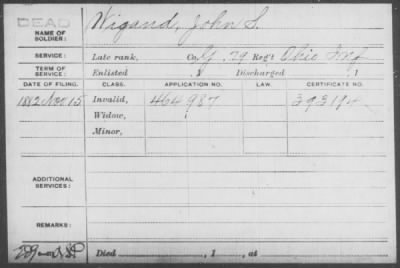 DEAD
NAME OF SOLDIER: Wigand, John S.
SERVICE: Late rank, Co. G. 79 Reg't Ohio Inf
TERM OF SERVICE: Enlisted 1 Discharged 1
DATE OF FILING. CLASS. APPLICATION NO. LAW. CERTIFICATE NO.
1882 Nov. 15 Invalid, 464987 393194
Widow,
Minor,
ADDITIONAL SERVICES:
REMARKS:
Died , 1 , at